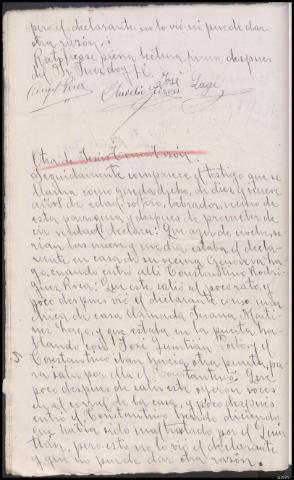 pero el declarante no lo vió ni puede dar
otra razón.
Ratificase previa lectura firma despues
del Sr. Juez doy fe.
José
Otra de Jesús
Seguidamente comparece el testigo que se
llama como queda dicho, de diez y nueve
años de edad, soltero, labrador, vecino de
esta parroquia y despues de prometer de-
cir verdad declara: Que ayer de noche, se-
rían las nueve y media, estaba el decla-
rante en casa de su vecina Genoveva
cuando entró allí Constantino Rodri-
guez Roca: Que este salió al poco rato, y
poco despues vió el declarante como una
chica de casa llamada Juana Marti-
nez y que estaba en la puerta ha-
blando con José Quintian y el
Constantino iban hacia otra puerta pa-
ra salir por ella el Constantino: Que
poco despues de salir este oyeron voces
en el corral de la casa, y poco despues
entró el Constantino herido diciendo
que había sido maltratado por el Quin-
tian, pero esto no lo vió el declarante
y que no puede dar otra razón.